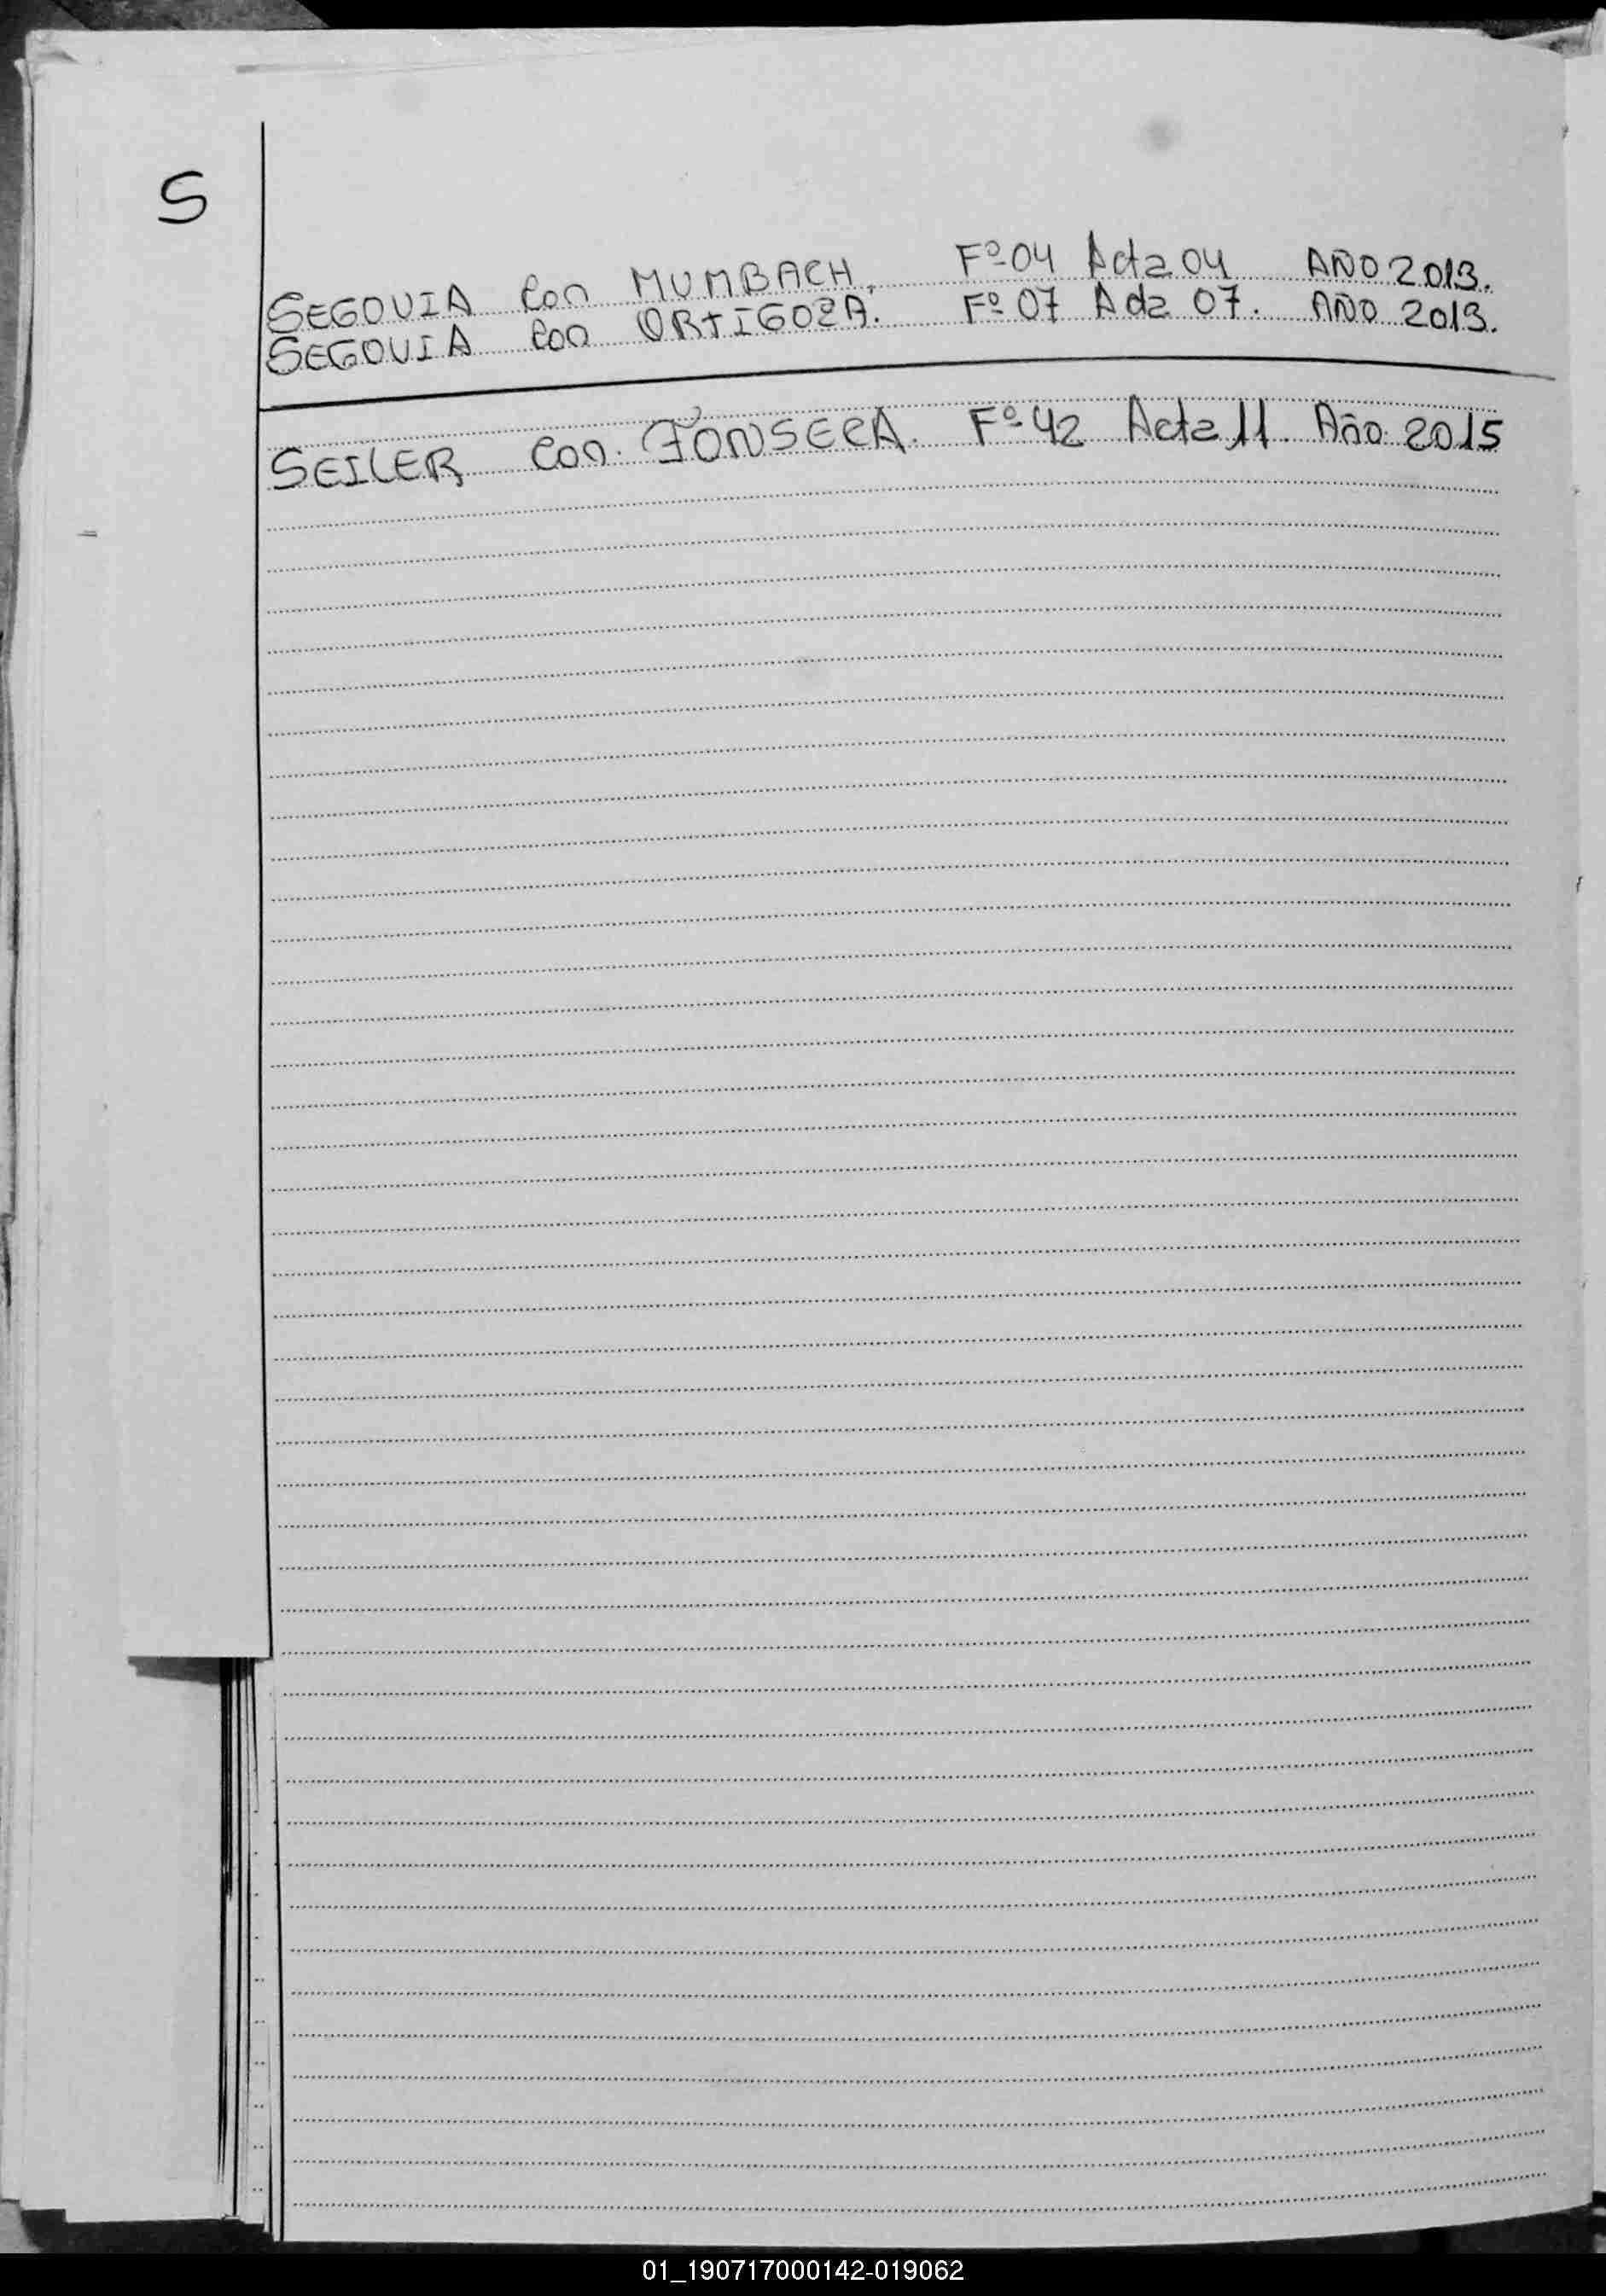 S
SEGOVIA con MUMBACH. Fº 04 Acta 04 AÑO 2013.
SEGOVIA con ORTIGOZA. Fº 07 Acta 07. AÑO 2013.
SEILER con. FONSECA. Fº 42 Acta 11. Año 2015
01_190717000142-019062